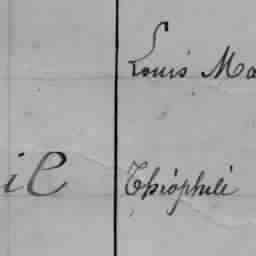 Louis Ma
il Théophile